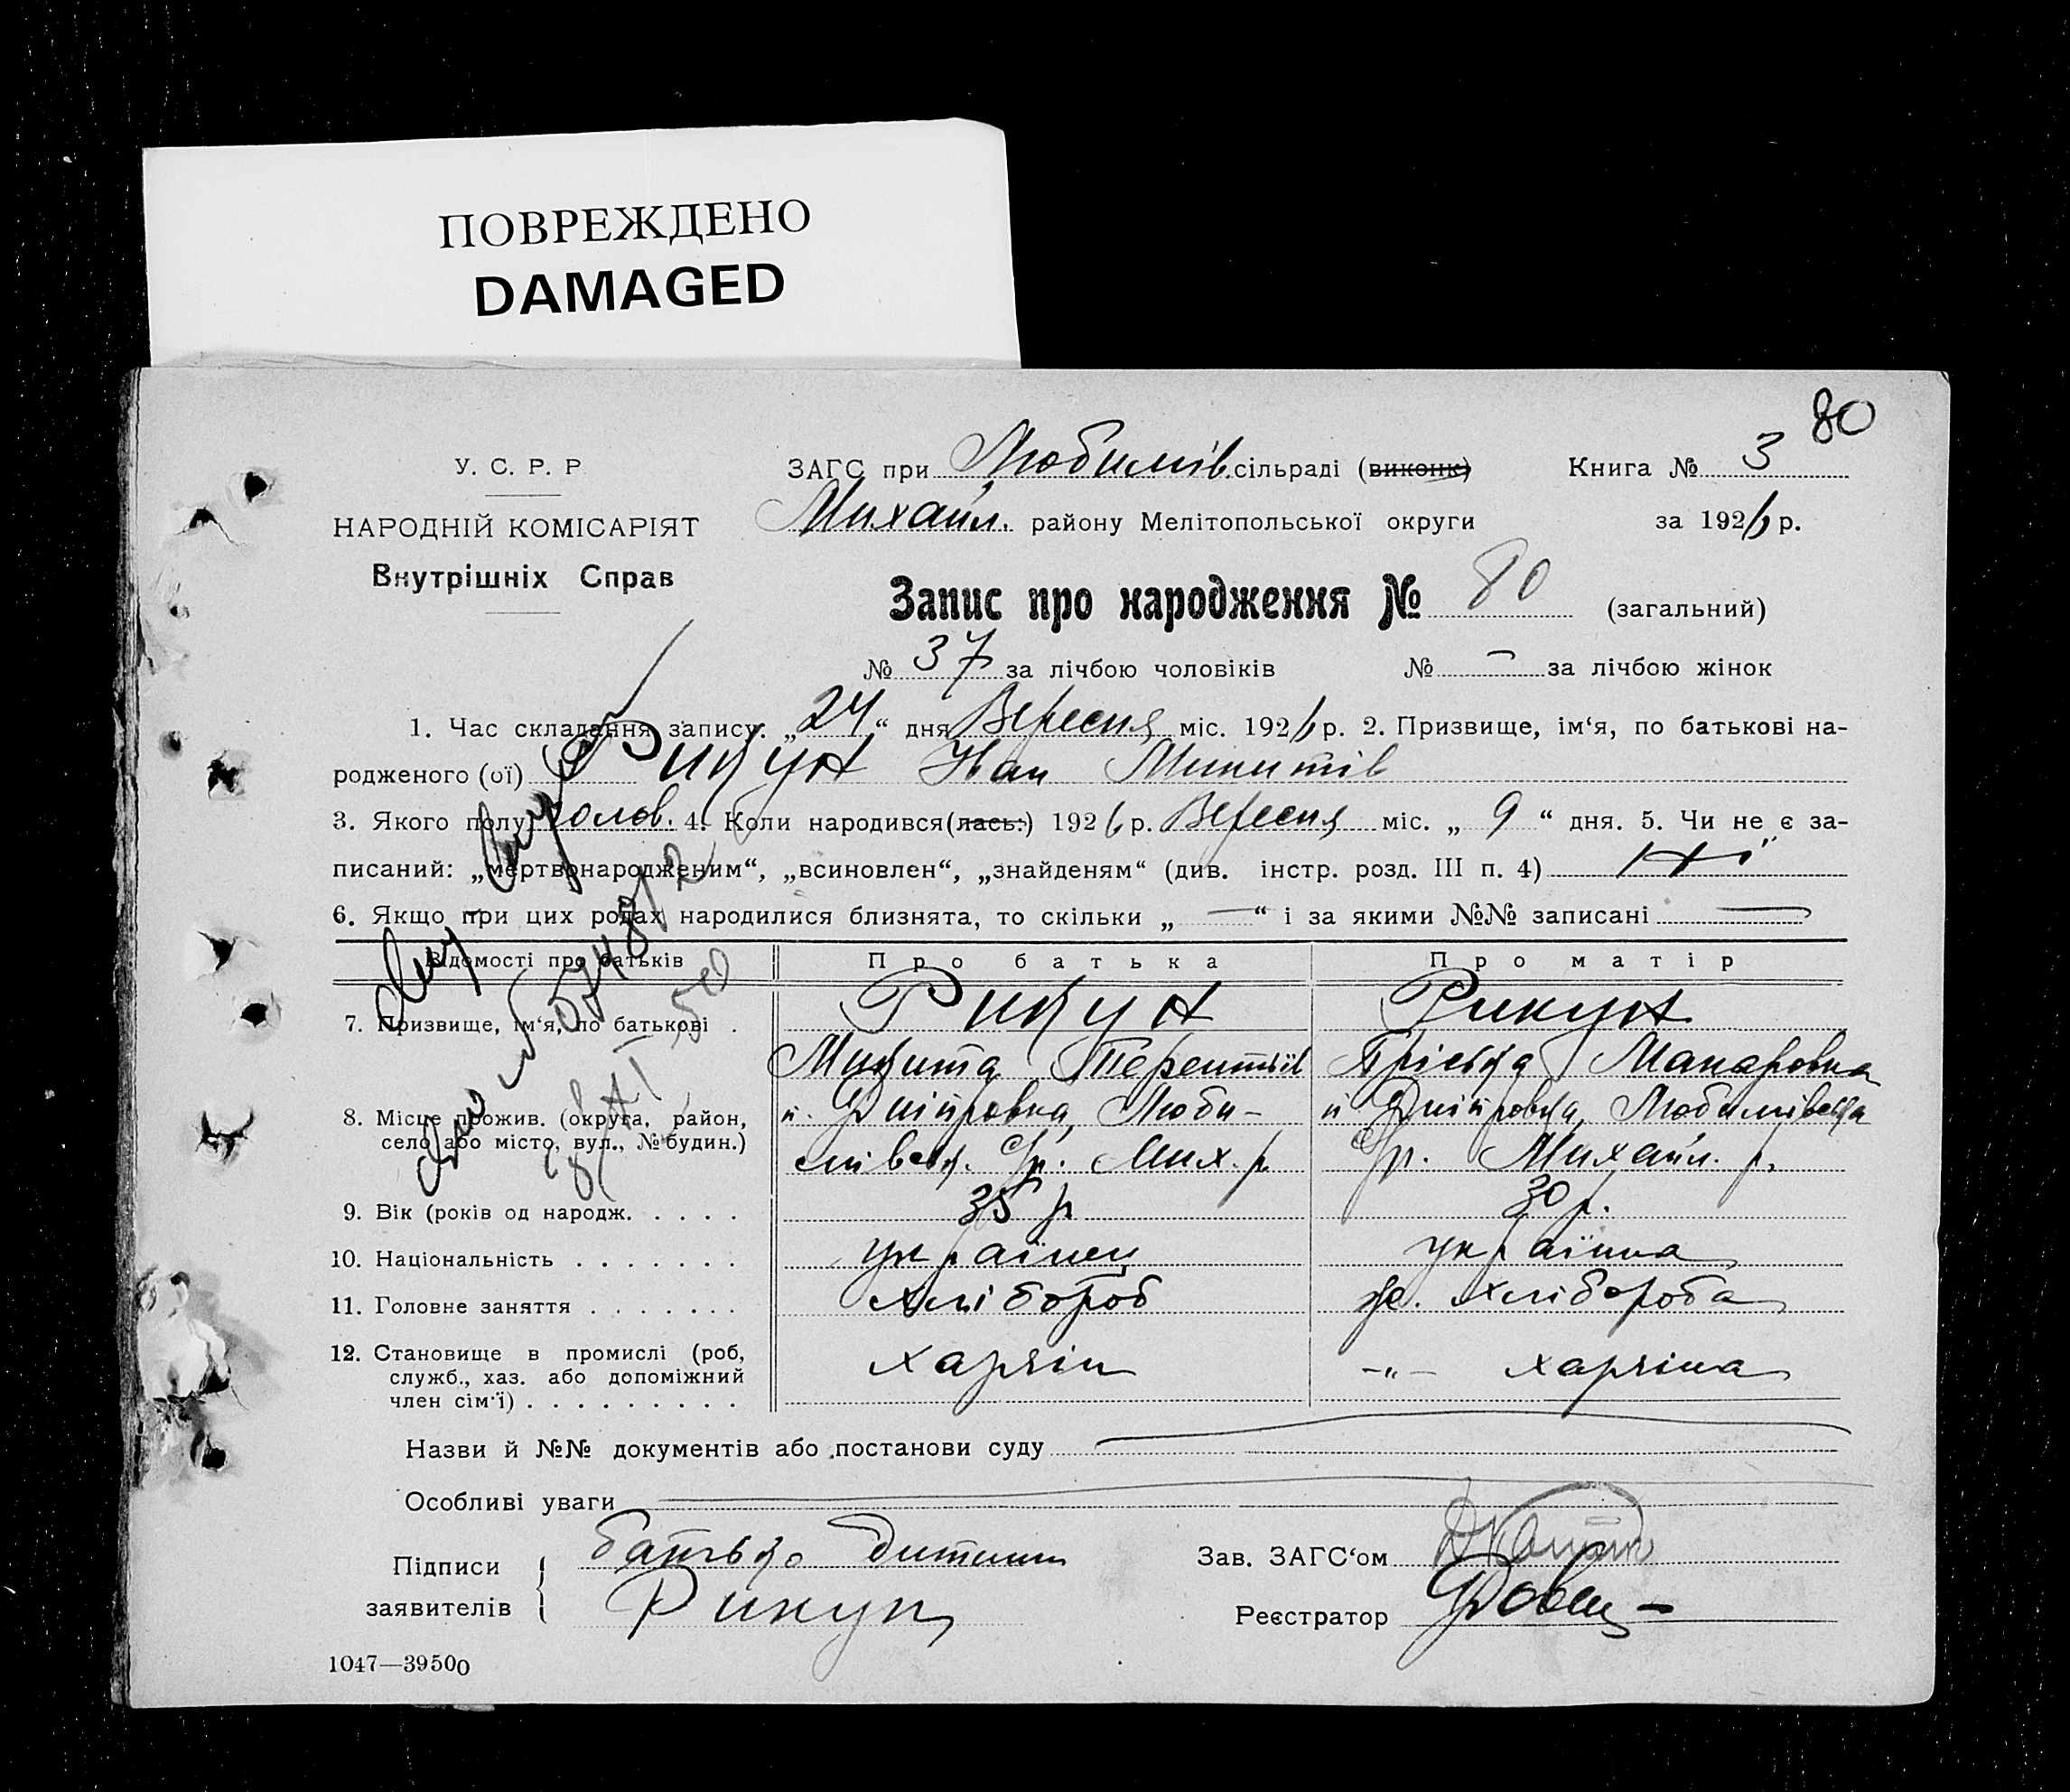 ПОВРЕЖДЕНО
DAMAGED
80
У. С. Р. Р
НАРОДНІЙ КОМІСАРІЯТ
Внутрішніх Справ
ЗАГС при Любимів. сільраді (виконк)
Книга № 3
Михайл. району Мелітопольської округи
за 1926 р.
Запис про народження № 80 (загальний)
№ 37 за лічбою чоловіків № — за лічбою жінок
1. Час складання запису: „24“ дня Вересня міс. 1926 р. 2. Призвище, ім‘я, по батькові на-
родженого (ої) Рикун Іван Микитів
3. Якого полу чолов. 4. Коли народився(лась:) 1926 р. Вересня міс. „ 9 “ дня. 5. Чи не є за-
писаний: „мертвонародженим“, „всиновлен“, „знайденям“ (див. інстр. розд. III п. 4) Ні
6. Якщо при цих родах народилися близнята, то скільки „ — “ і за якими №№ записані —
Відомості про батьків Про батька Про матір
7. Призвище, ім‘я, по батькові . Рикун Рикун
Микита Терентіїв Пріська Макаровна
8. Місце прожив. (округа, район, п. Дніпровка, Люби- п Дніпровка, Любимівська
село або місто, вул., № будин.) мівськ. С/р. Мих. р. С/р. Михайл. р.
9. Вік (років од народж. . . . . 35 р 30 р.
10. Національність . . . . . . . українец українка
11. Головне заняття . . . . . . . хлібороб ж. хлібороба
12. Становище в промислі (роб, хазяїн -„- хазяїна
служб., хаз. або допоміжний
член сім‘ї) . . . . . . . . .
Назви й №№ документів або постанови суду
Особливі уваги
Підписи
заявителів
батько дитини
Рикун
Зав. ЗАГС‘ом
Реєстратор
1047—39500